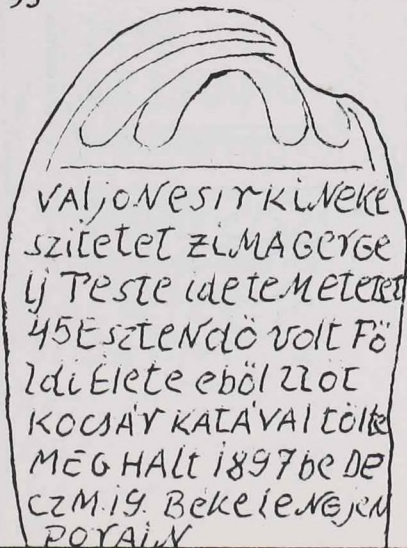 VAljoN e SirKiNeKe
szitetet ZiMAGerGe
lj Teste ideteMetetet
45 EszteNdö volt Fö
ldi Élete eböl 22öt
KOCSÁr KATÁVAl tölte
MEG HAlt 1897be De
CZM.19. Béke leNGjeN
PORAiN